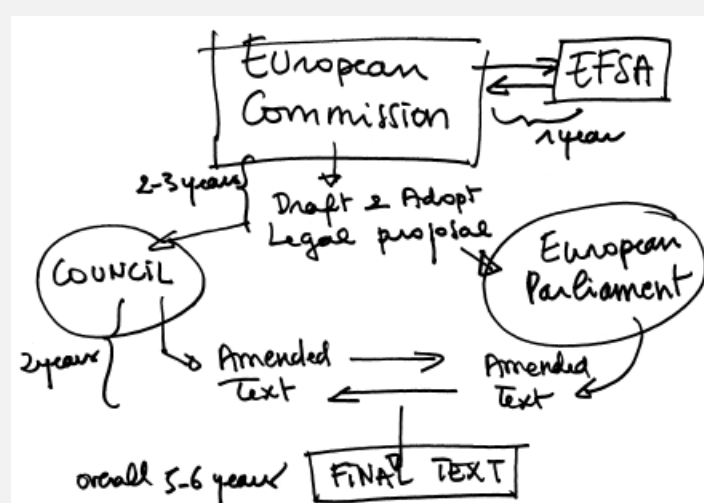 European
Commission
EFSA
1 year
2-3 years
Draft & Adopt
Legal proposal
COUNCIL
European
Parliament
2 years
Amended
Text
Amended
Text
overall 5-6 years
FINAL TEXT